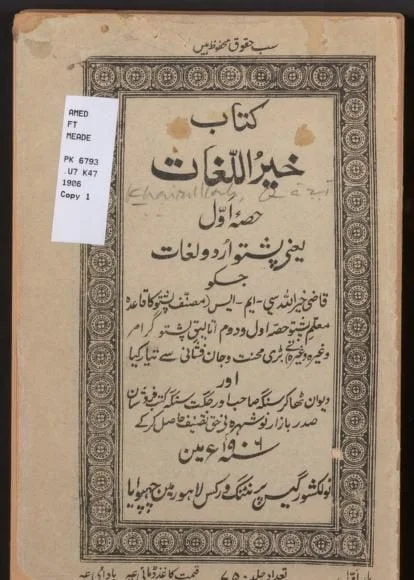 سب حقوق محفوظ ہیں
کتاب
خیر اللغات
حصۂ اول
یعنی پشتو اردو لغات
جسکو
قاضی خیراللہ سی - ایم - ایس (مصنف پشتو کا قاعدہ
معلم پشتو حصہ اول و دوم اتالیق پشتو گرامر
وغیرہ وغیرہ) نے بڑی محنت و جان فشانی سے تیار کیا
اور
دیوان ٹھاکر سنگھ صاحب اور جگت سنگھ کتب فروشان
صدر بازار نوشہرہ نے حق تصنیف حاصل کر کے
سنہ ۱۹۰۶ء میں
نولکشور گیس پرنٹنگ ورکس لاہور میں چھپوایا
تعداد جلد ۷۵۰
AMED
FT
MEADE
PK 6793
.U7 K47
1906
Copy 1